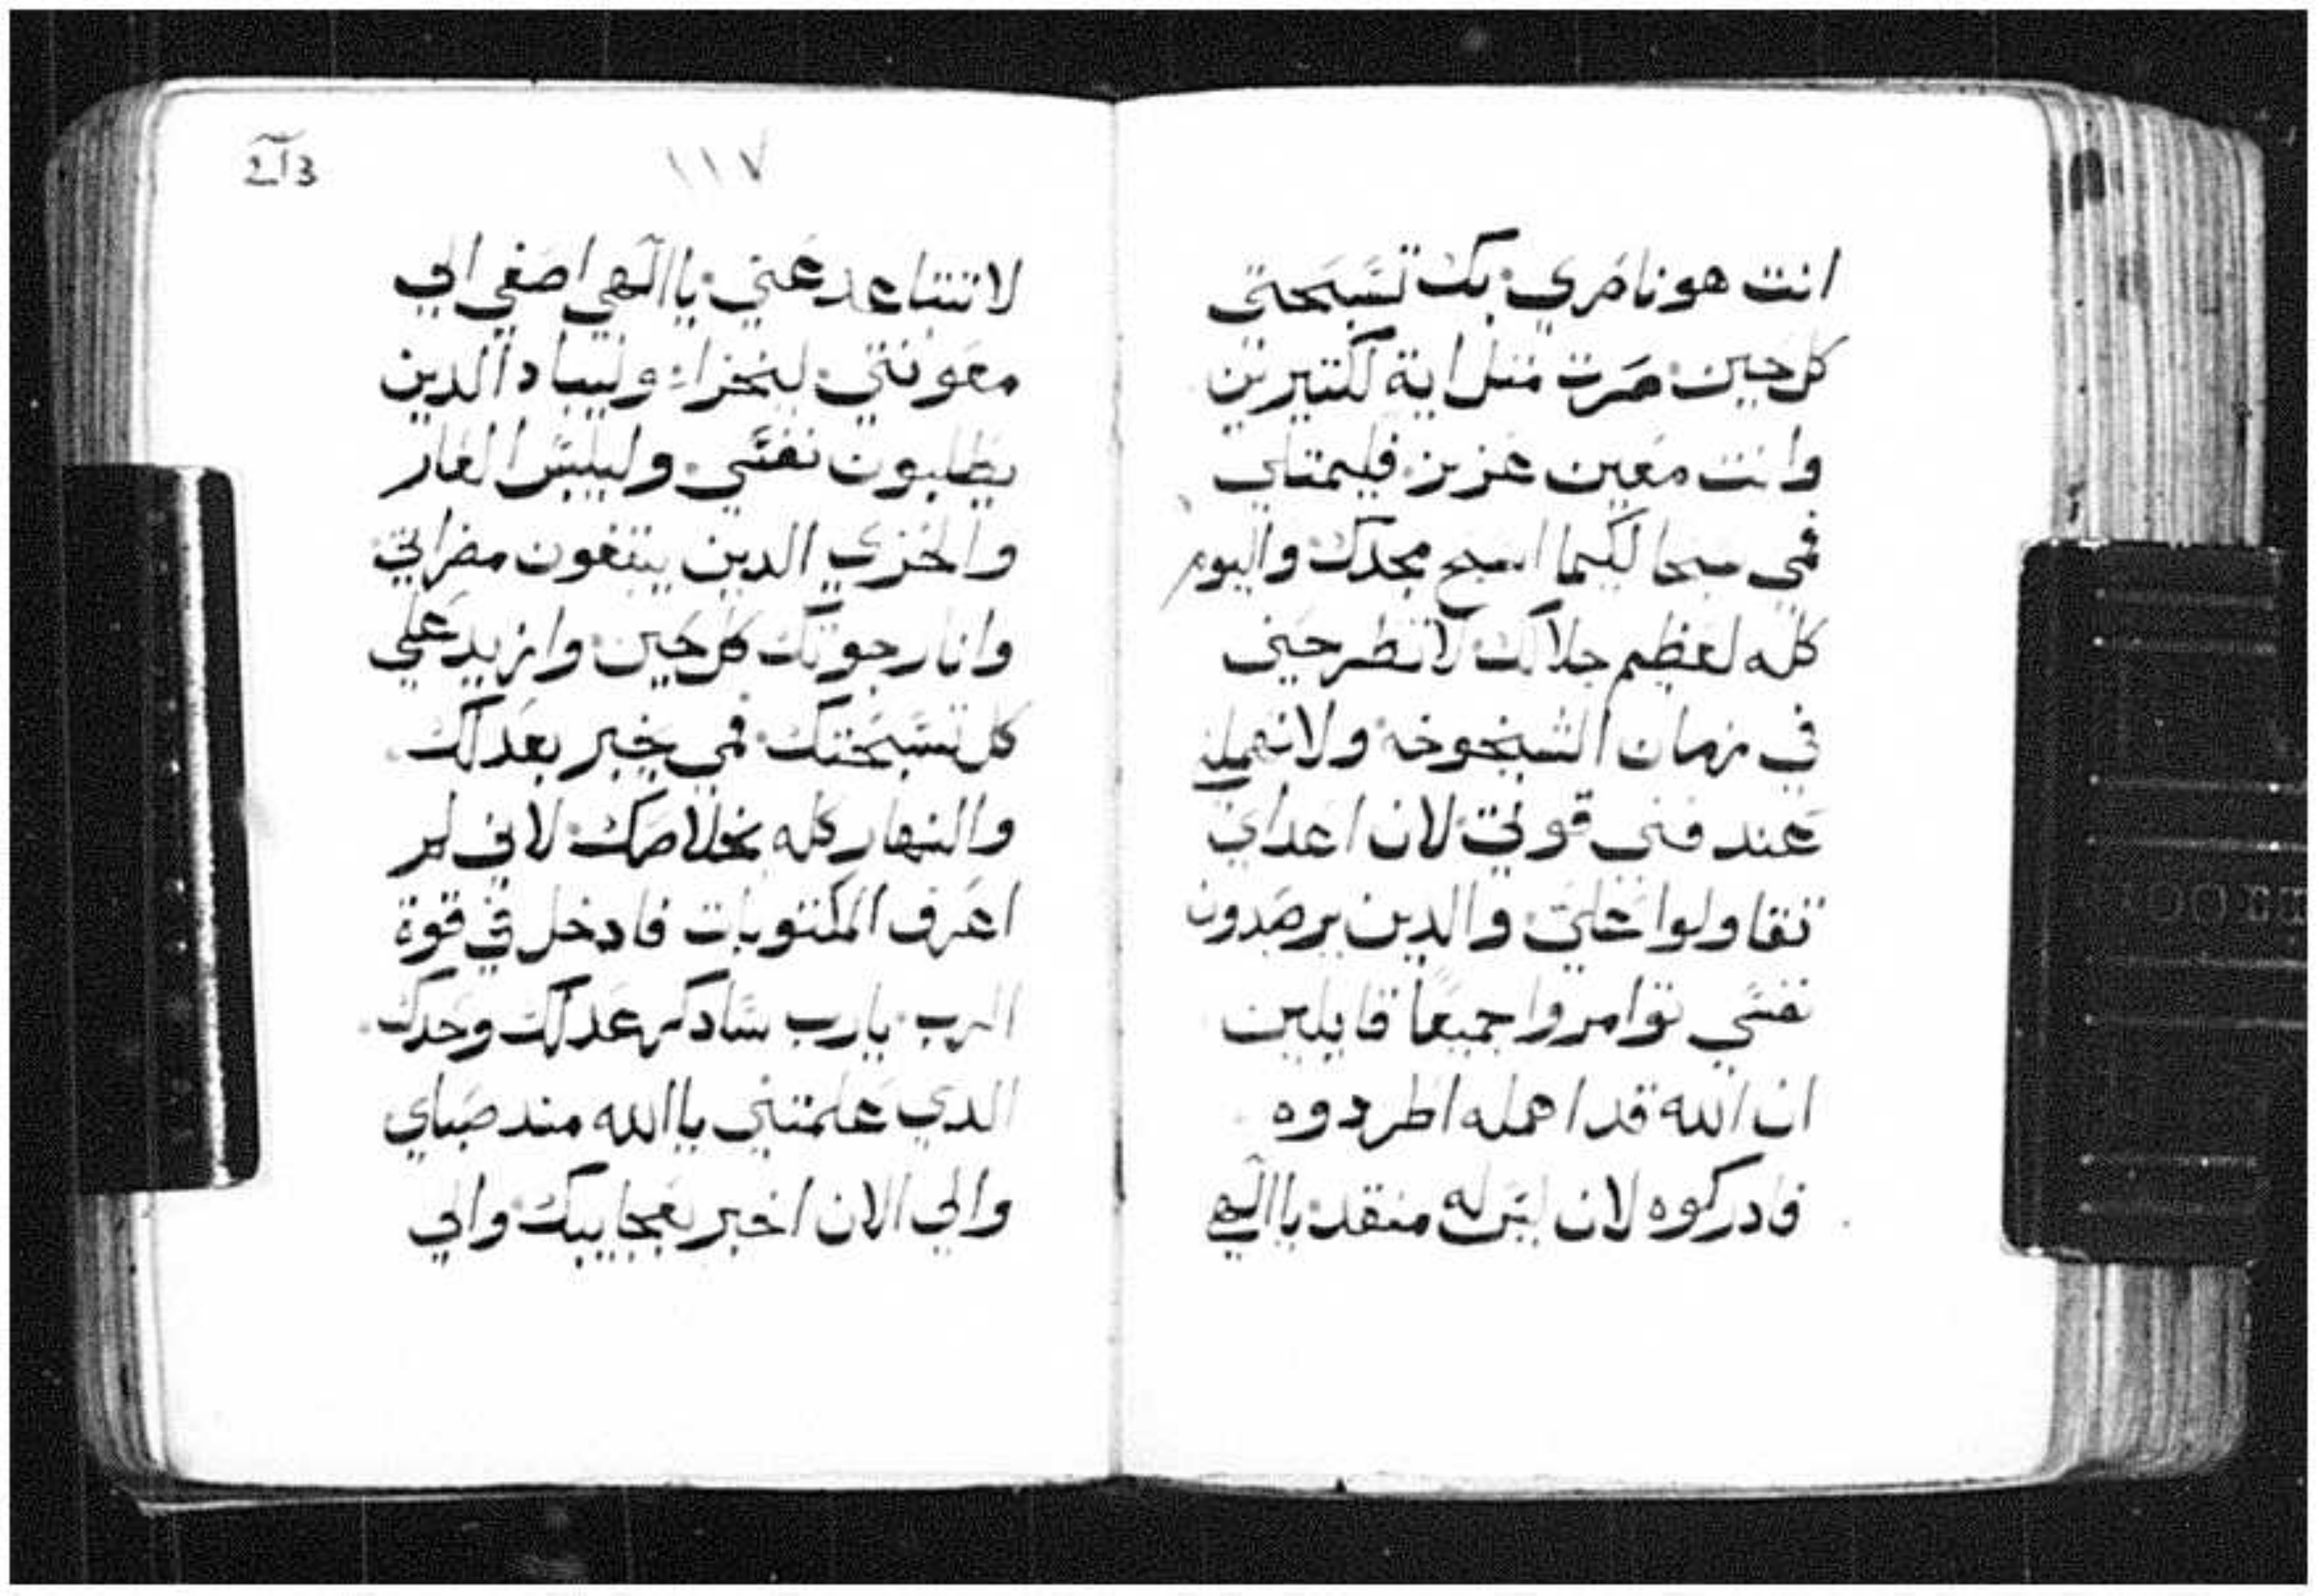 انت هو ناصري بك تسبحتي
كل حين صرت متل اية لكتيرين
وانت معين عزيز فليمتلي
فمي سبحا لكيما اسبح مجدك واليوم
كله لعظم جلالك لا تطرحني
في زمان الشيخوخه ولا تهملني
عند فني قوتي لان اعداي
تقاولوا علي والدين يرصدون
نفسي توامروا جميعاً قايلين
ان الله قد اهمله اطردوه
فادركوه لان ليس له منقد ياالهي
١١٧
لا تتباعد عني ياالهي اصغي الي
معونتي ليخزاء وليباد الدين
يطلبون نفسي وليلبس العار
والخزي الدين يبتغون مضراتي
وانا رجوتك كل حين وازيد علي
كل تسبحتك فمي يخبر بعدلك
والنهار كله بخلاصك لاني لم
اعرف المكتوبات فادخل في قوة
الرب يارب سادكر عدلك وحدك
الدي علمتني ياالله مند صباي
والي الان اخبر بعجايبك والي